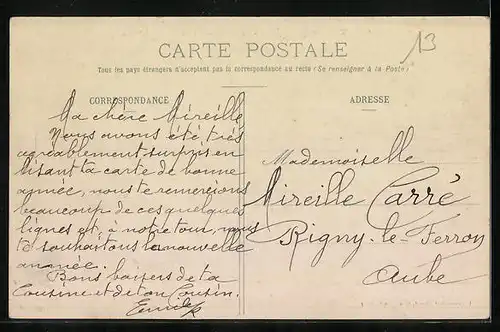 13
CARTE POSTALE
Tous les pays étrangers n'acceptent pas la correspondance au recto (Se renseigner à la Poste)
CORRESPONDANCE
Ma chère Mireille
Nous avons été très
agréablement surpris en
lisant ta carte de bonne
année, nous te remercions
beaucoup de ces quelques
lignes et, à notre tour, nous
te souhaitons la nouvelle
année.
Bons baisers de ta
Cousine et de ton Cousin.
ADRESSE
Mademoiselle
Mireille Carré
Rigny-le-Ferron
Aube